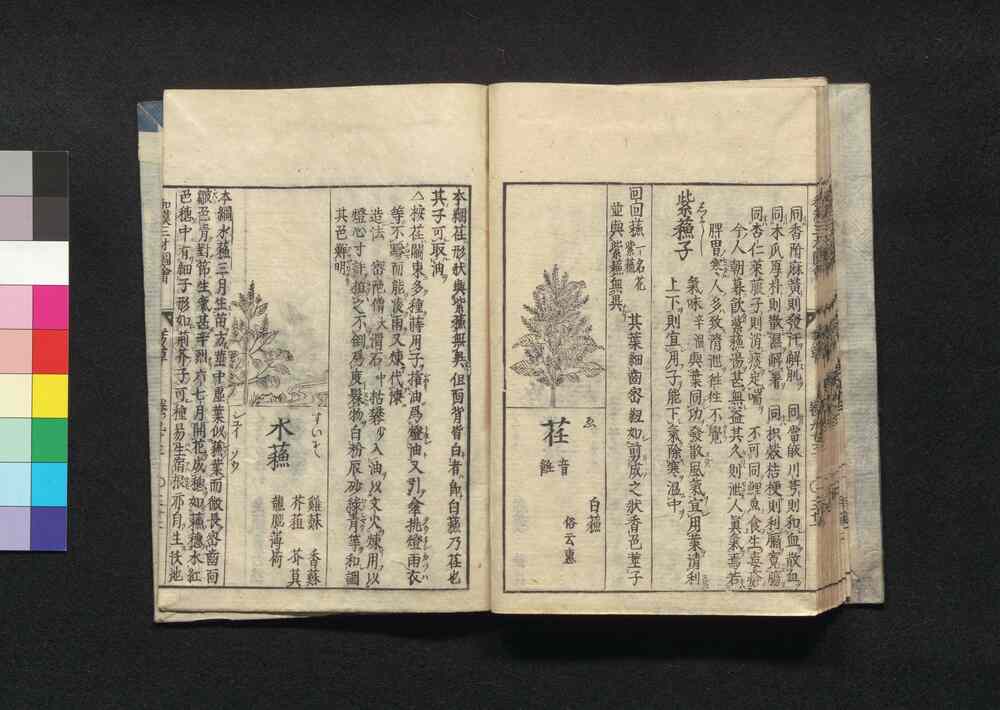 同香附麻黃則發汗解肌　同當歸川芎則和血散血
同木瓜厚朴則散濕解暑　同枳殼桔梗則利膈寬腸
同杏仁萊菔子則消痰定喘　不可同鯉魚食生毒瘡
今人朝暮飲紫蘇湯甚無益其久則泄人眞氣焉若
脾胃寒人多致滑泄徃徃不覺
紫蘇子
氣味辛溫與葉同功發散風氣宜用葉清利
上下則宜用子能下氣除寒溫中
回回蘇　一名花紫蘇
其葉細齒密紐如剪成之狀香色莖子
並與紫蘇無異
ゑ
荏
音
白蘇
俗云惠
本綱荏形狀與紫蘇無異但面背皆白者卽白蘇乃荏也
其子可取油
△按荏關東多種蒔用子搾油爲燈油又引傘挑燈雨衣
等不黏而能凌雨又煉代漆
造法　密陀僧　滑石　入油以文火煉用以
燈心寸許植之不倒爲度髹物白粉辰砂綠青等和調
其色鮮明
すいそ
水蘇
雞蘇　香蘇
芥蒩　芥苴
龍腦薄荷
シイ　ソウ
本綱水蘇三月生苗方莖中虛葉似蘇葉而微長密齒面
皺色青對節生氣甚辛烈六七月開花成穗如蘇穗水紅
色穗中有細子形如荊芥子可種易生宿根亦自生伏池